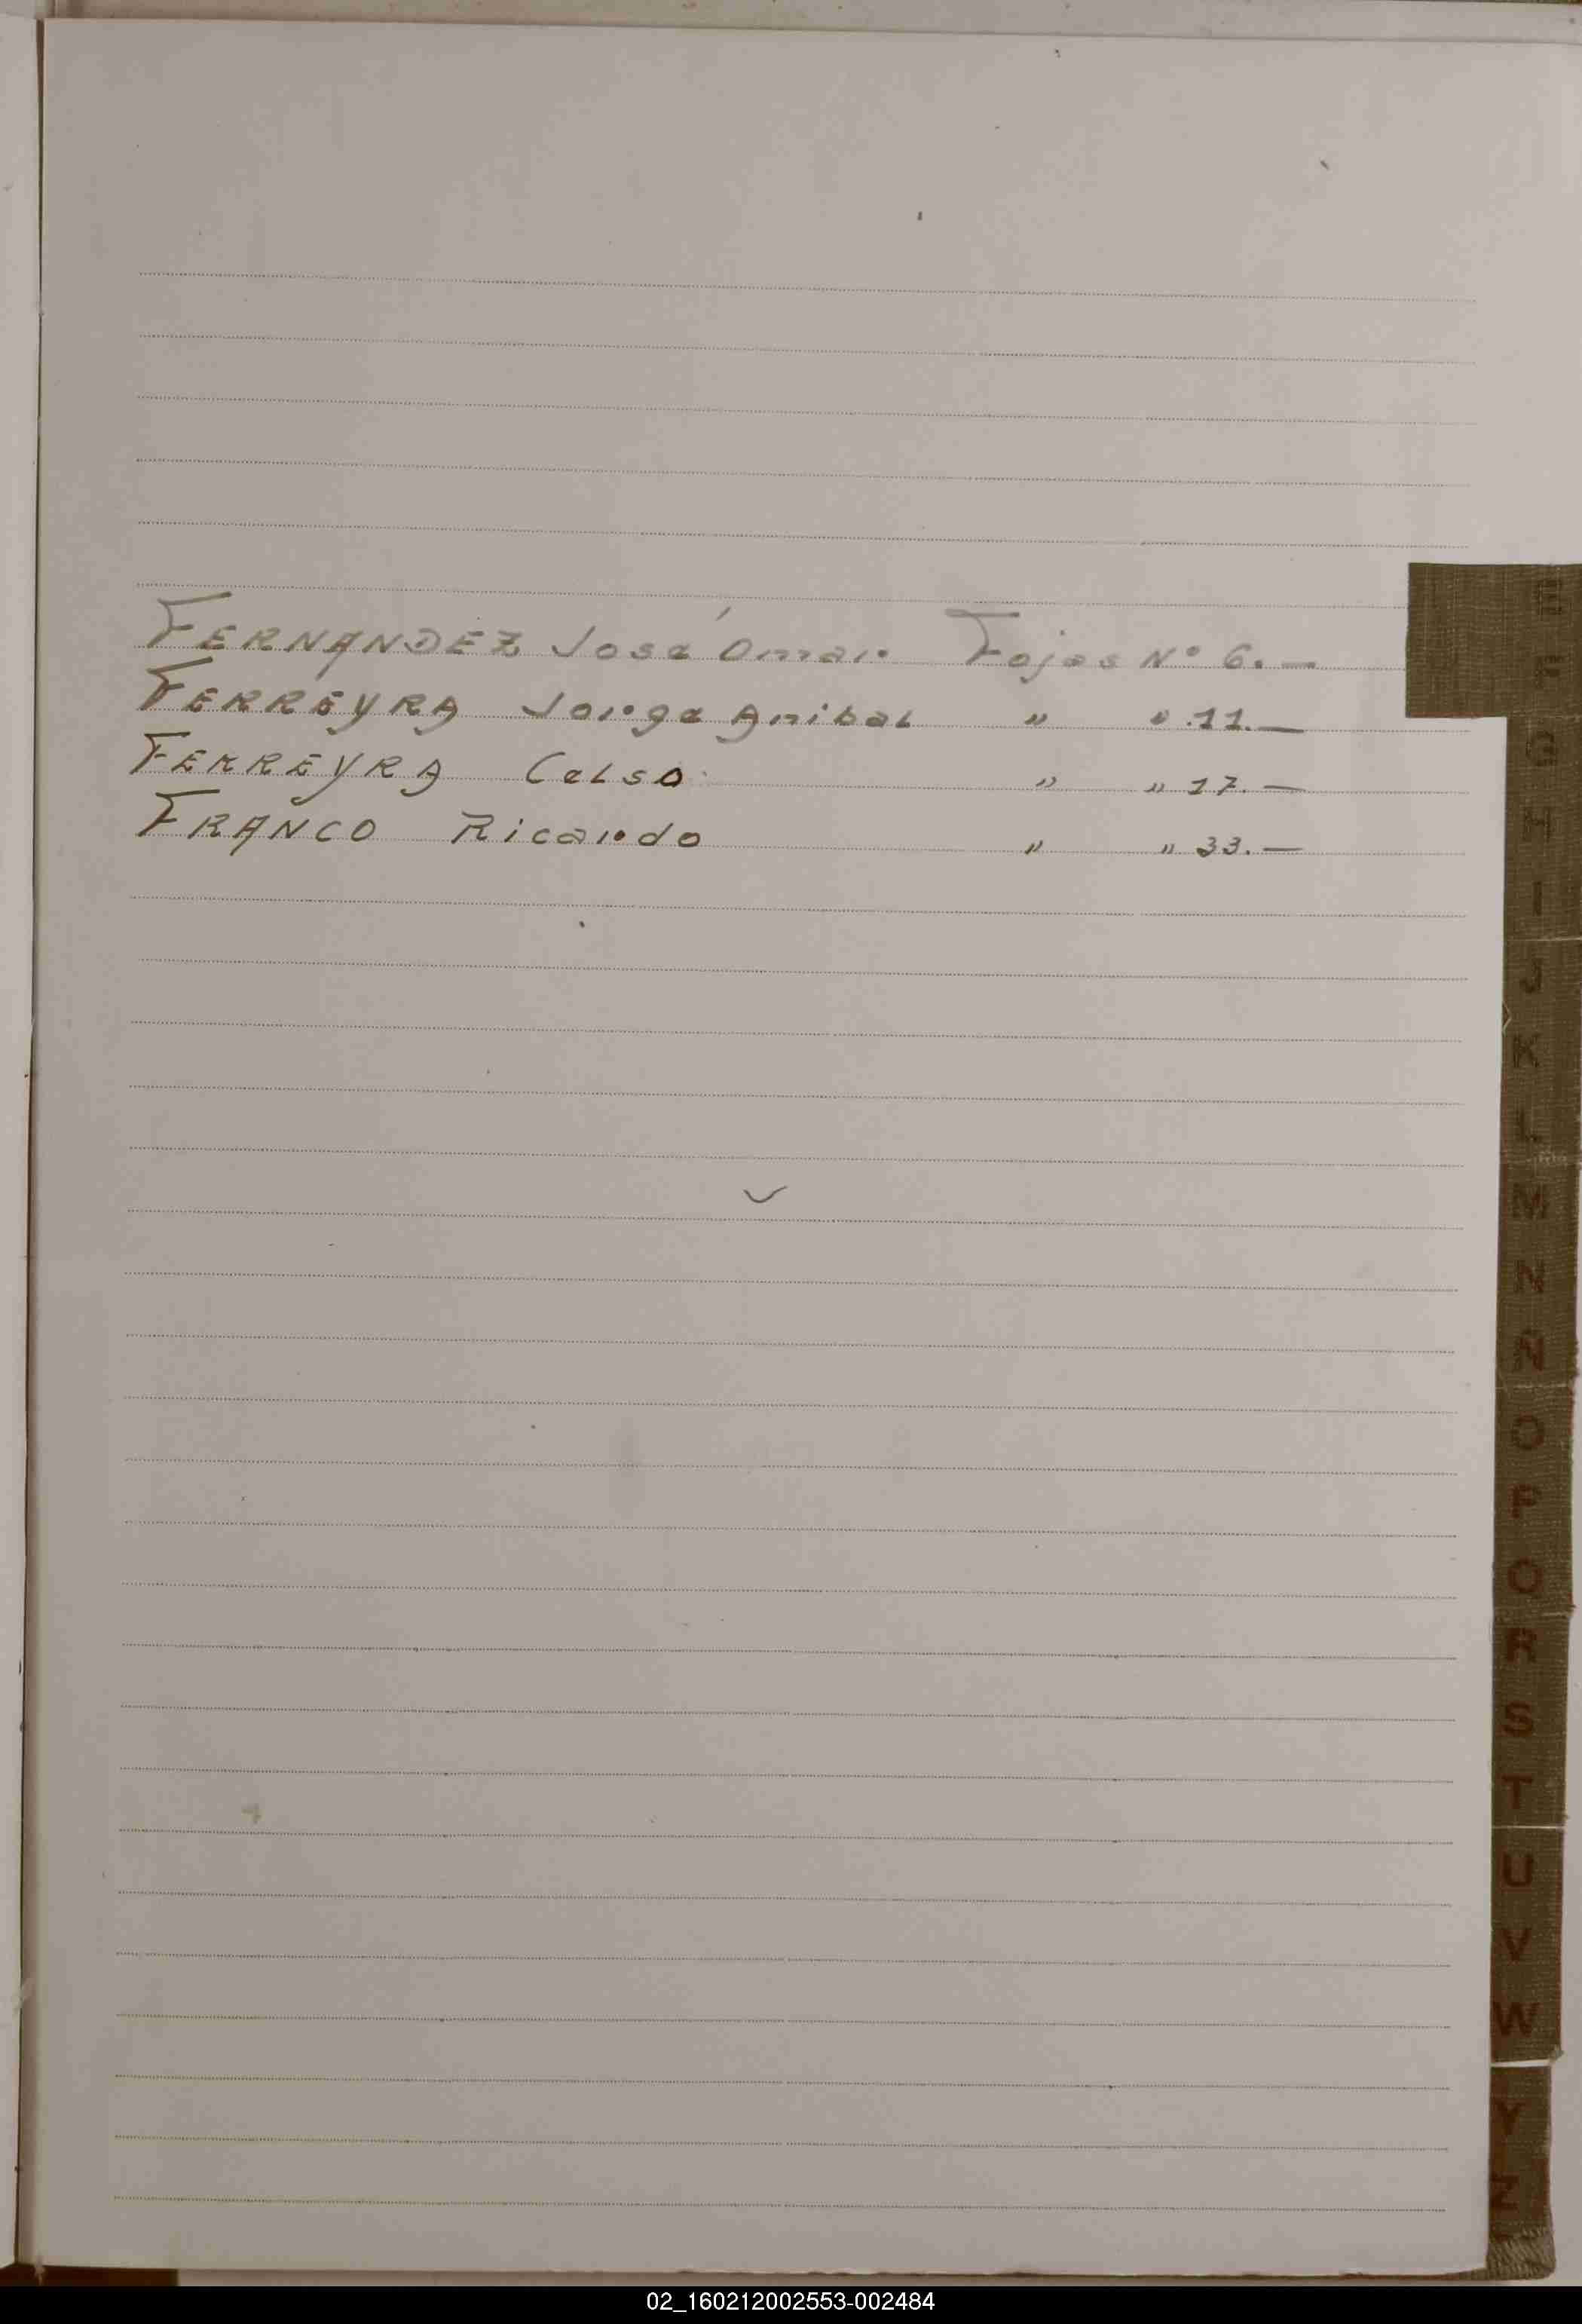 FERNANDEZ José Omar Fojas Nº 6.—
FERREYRA Jorge Anibal " " 11.—
FERREYRA Celso " " 17.—
FRANCO Ricardo " " 33.—
E
F
G
H
I
J
K
L
M
N
Ñ
O
P
Q
R
S
T
U
V
W
Y
Z
02_160212002553-002484